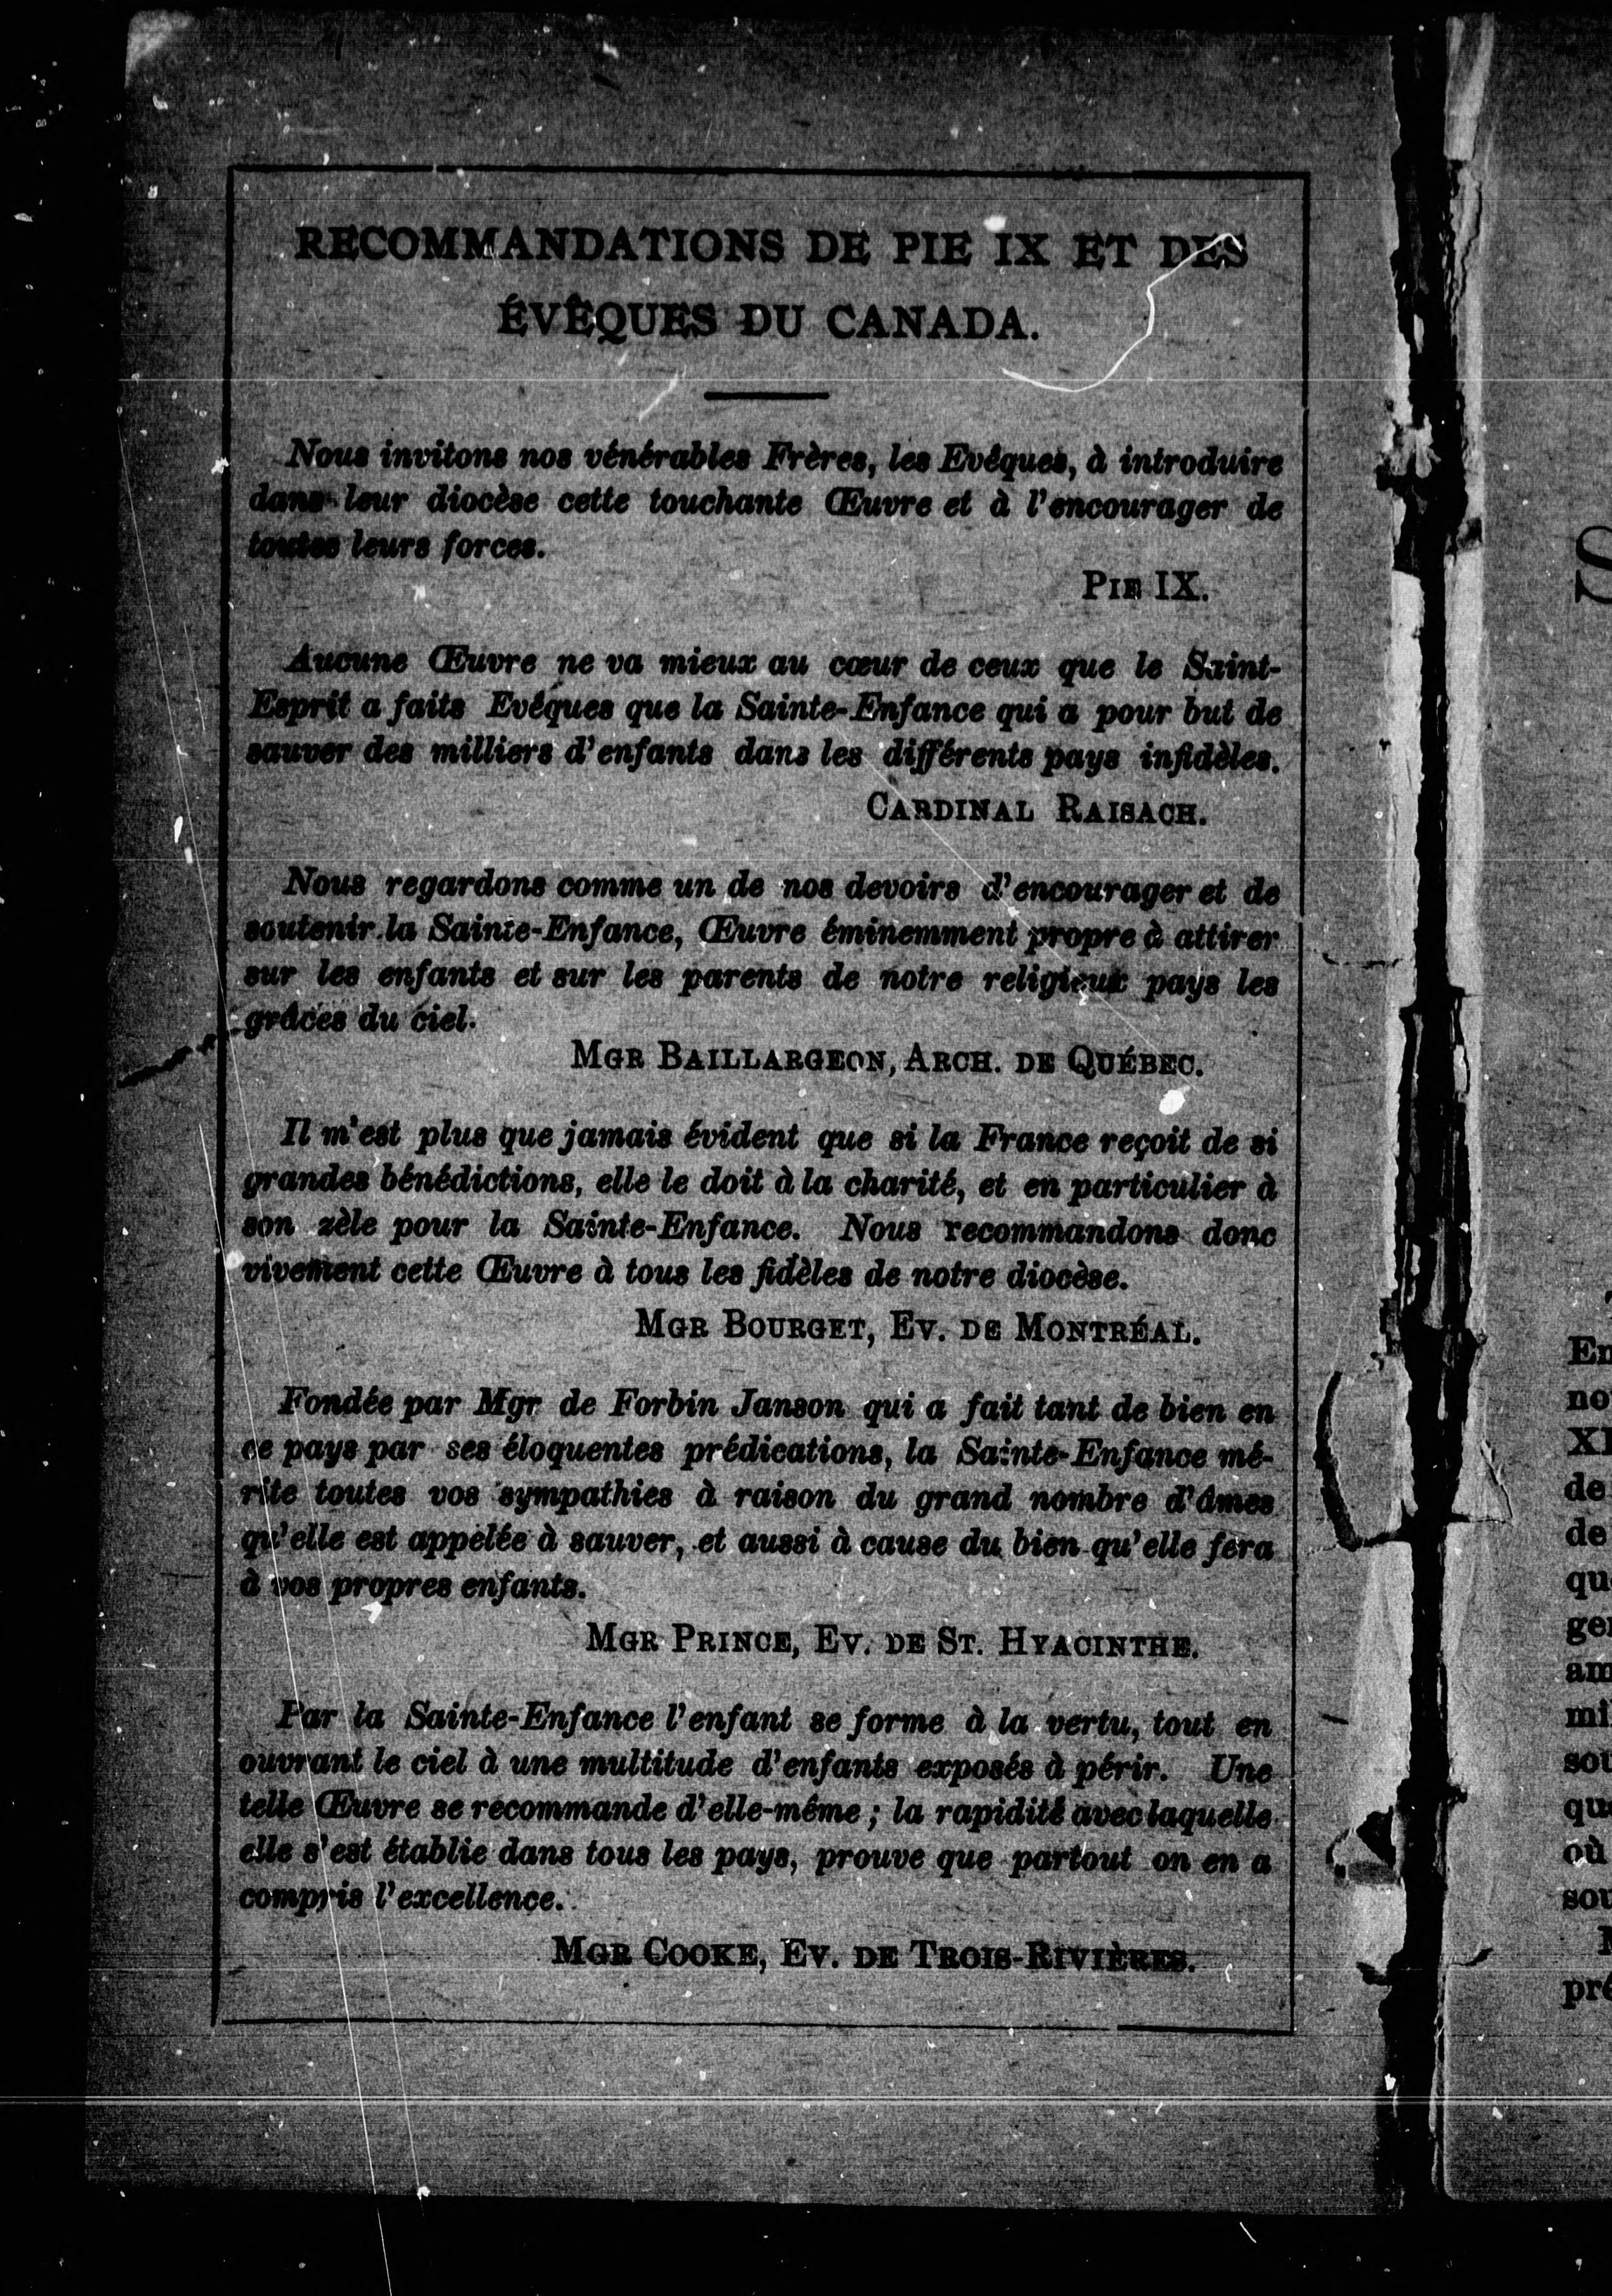 RECOMMANDATIONS DE PIE IX ET DES
ÉVÊQUES DU CANADA.
Nous invitons nos vénérables Frères, les Evêques, à introduire
dans leur diocèse cette touchante Œuvre et à l'encourager de
toutes leurs forces.
PIE IX.
Aucune Œuvre ne va mieux au cœur de ceux que le Saint-
Esprit a faits Evêques que la Sainte-Enfance qui a pour but de
sauver des milliers d'enfants dans les différents pays infidèles.
CARDINAL RAISACH.
Nous regardons comme un de nos devoirs d'encourager et de
soutenir la Sainte-Enfance, Œuvre éminemment propre à attirer
sur les enfants et sur les parents de notre religieux pays les
grâces du ciel.
MGR BAILLARGEON, ARCH. DE QUÉBEC.
Il m'est plus que jamais évident que si la France reçoit de si
grandes bénédictions, elle le doit à la charité, et en particulier à
son zèle pour la Sainte-Enfance. Nous recommandons donc
vivement cette Œuvre à tous les fidèles de notre diocèse.
MGR BOURGET, EV. DE MONTRÉAL.
Fondée par Mgr de Forbin Janson qui a fait tant de bien en
ce pays par ses éloquentes prédications, la Sainte-Enfance mé-
rite toutes vos sympathies à raison du grand nombre d'âmes
qu'elle est appelée à sauver, et aussi à cause du bien qu'elle fera
à vos propres enfants.
MGR PRINCE, EV. DE ST. HYACINTHE.
Par la Sainte-Enfance l'enfant se forme à la vertu, tout en
ouvrant le ciel à une multitude d'enfants exposés à périr. Une
telle Œuvre se recommande d'elle-même ; la rapidité avec laquelle
elle s'est établie dans tous les pays, prouve que partout on en a
compris l'excellence.
MGR COOKE, EV. DE TROIS-RIVIÈRES.